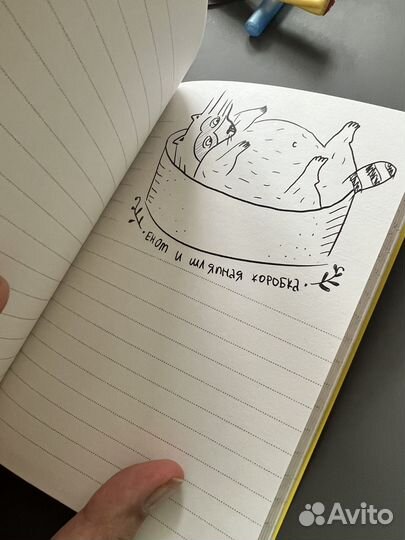 ·ЕНОТ И ШЛЯПНАЯ КОРОБКА·
Avito